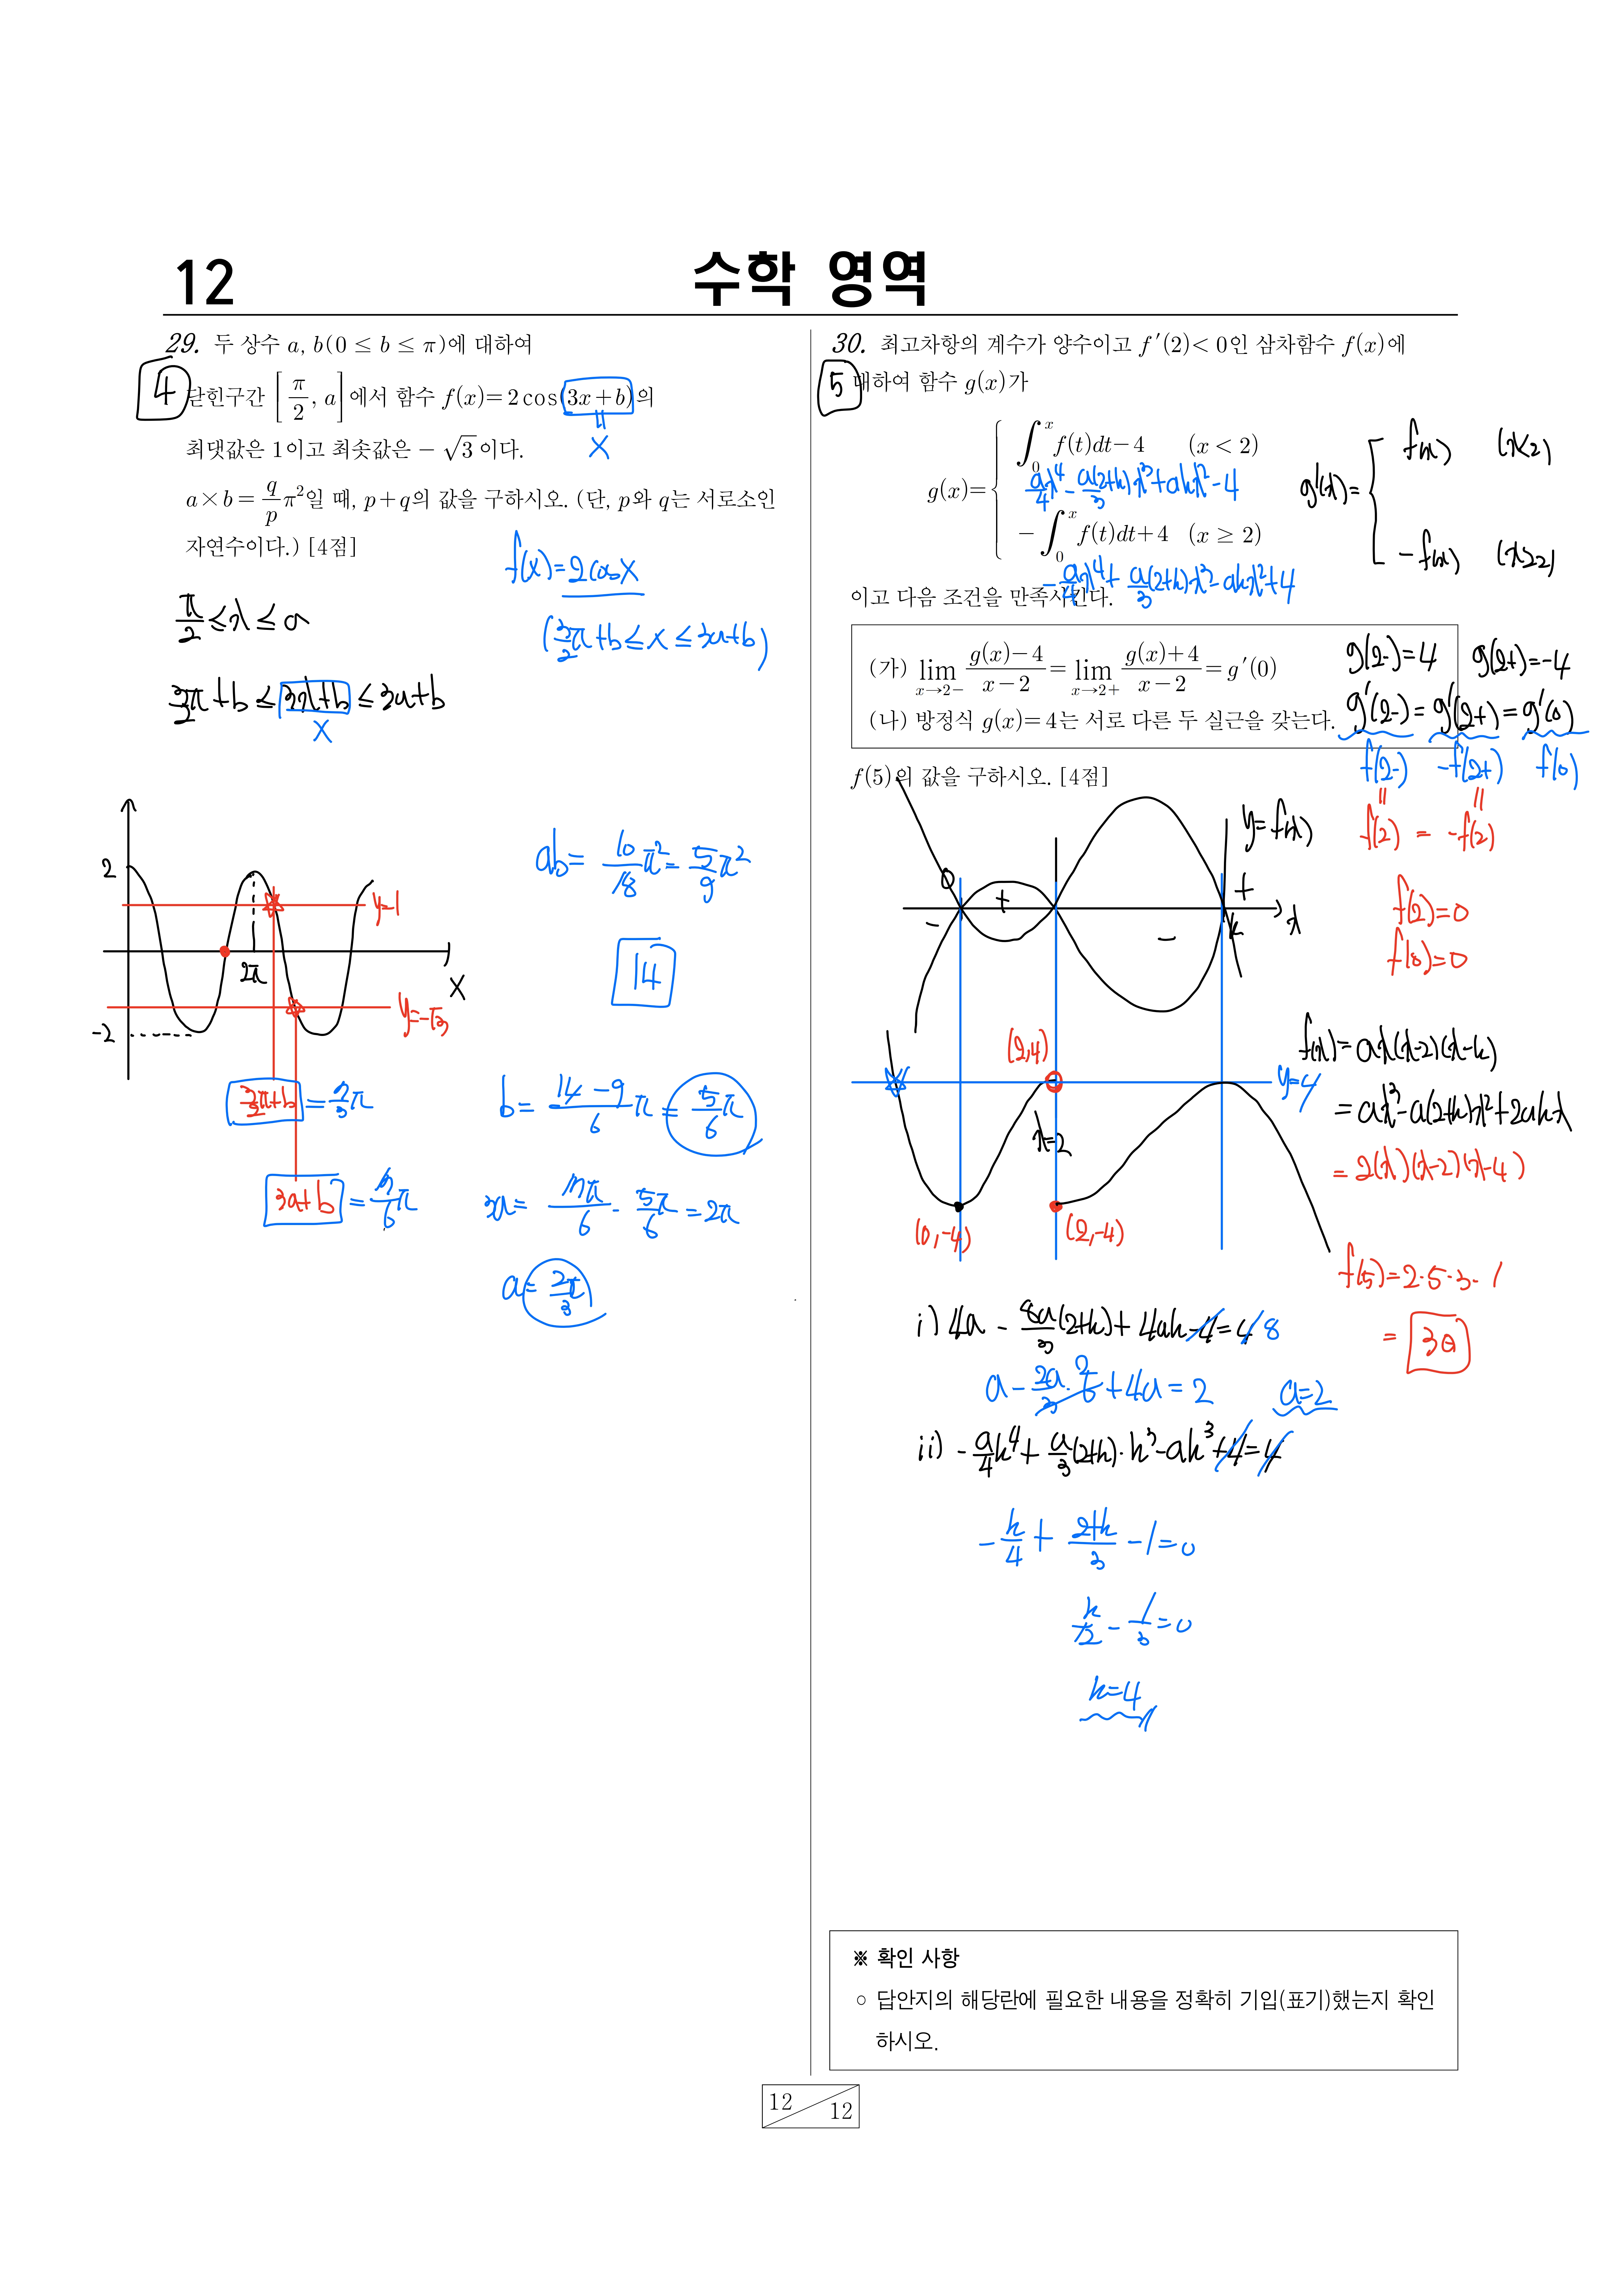 12
수학 영역
29. 두 상수 a, b(0 ≤ b ≤ π)에 대하여
4
닫힌구간 [π/2, a]에서 함수 f(x)=2cos(3x+b)의
X
최댓값은 1이고 최솟값은 −√3이다.
a×b = q/p π²일 때, p+q의 값을 구하시오. (단, p와 q는 서로소인
자연수이다.) [4점]
f(x)=2cosX
(3/2π+b≤X≤3a+b)
π/2 ≤x≤ a
3/2π+b ≤ 3x+b ≤ 3a+b
X
2
y=1
2π
X
-2
y=-√3
3/2π+b = 7/3π
3a+b = 17/6π
ab= 10/18π²= 5/9π²
14
b= (14-9)/6 π = 5/6π
3a= 17π/6 - 5π/6 =2π
a= 2π/3
30. 최고차항의 계수가 양수이고 f′(2)<0인 삼차함수 f(x)에
5
대하여 함수 g(x)가
g(x)= { ∫₀ˣ f(t)dt−4 (x<2)
a/4x⁴ - a(2+k)/3x³+akx²-4
−∫₀ˣ f(t)dt+4 (x≥2)
-a/4x⁴+ a/3(2+k)x³-akx²+4
g'(x)= { f(x) (x<2)
-f(x) (x≥2)
이고 다음 조건을 만족시킨다.
(가) lim x→2− (g(x)−4)/(x−2) = lim x→2+ (g(x)+4)/(x−2) = g′(0)
(나) 방정식 g(x)=4는 서로 다른 두 실근을 갖는다.
g(2-)=4 g(2+)=-4
g'(2-)=g'(2+)=g'(0)
f(2-) -f(2+) f(0)
f(2) = -f(2)
f(2)=0
f(0)=0
f(5)의 값을 구하시오. [4점]
y=f(x)
0 + - - + k x
f(x)=ax(x-2)(x-k)
=ax³-a(2+k)x²+2akx
=2(x)(x-2)(x-4)
(2,4)
y=4
x=2
(0,-4)
(2,-4)
f(5)=2·5·3·1
= 30
i) 4a - 8a/3(2+k)+4ak-4=4 8
a- 2a/3·6 2+4a=2 a=2
ii) -a/4k⁴+ a/3(2+k)·k³-ak³+4=4
-k/4+ (2+k)/3 -1=0
k/12 - 1/3=0
k=4
※ 확인 사항
○ 답안지의 해당란에 필요한 내용을 정확히 기입(표기)했는지 확인
하시오.
12
12